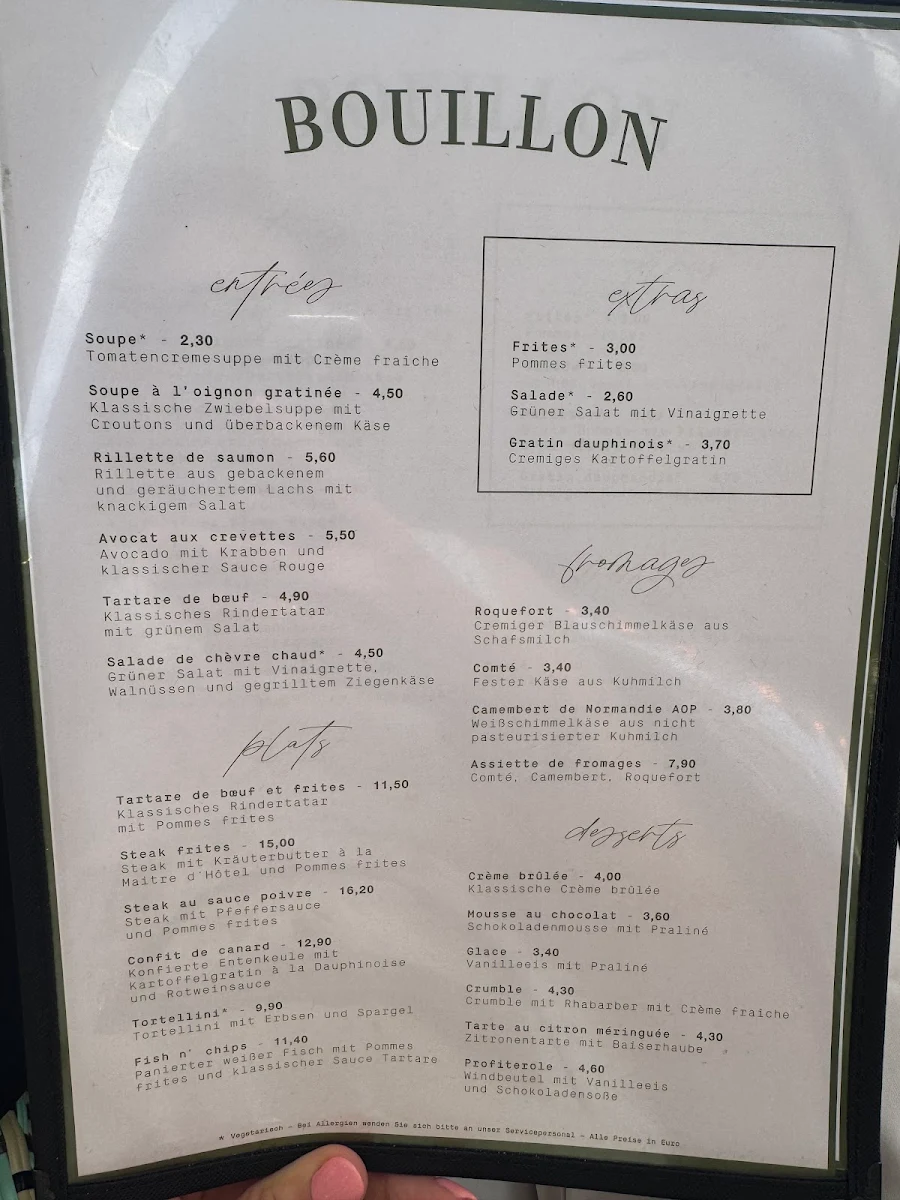 BOUILLON
entrées
Soupe* - 2,30
Tomatencremesuppe mit Crème fraiche
Soupe à l'oignon gratinée - 4,50
Klassische Zwiebelsuppe mit
Croutons und überbackenem Käse
Rillette de saumon - 5,60
Rillette aus gebackenem
und geräuchertem Lachs mit
knackigem Salat
Avocat aux crevettes - 5,50
Avocado mit Krabben und
klassischer Sauce Rouge
Tartare de bœuf - 4,90
Klassisches Rindertatar
mit grünem Salat
Salade de chèvre chaud* - 4,50
Grüner Salat mit Vinaigrette,
Walnüssen und gegrilltem Ziegenkäse
plats
Tartare de bœuf et frites - 11,50
Klassisches Rindertatar
mit Pommes frites
Steak frites - 15,00
Steak mit Kräuterbutter à la
Maitre d'Hôtel und Pommes frites
Steak au sauce poivre - 16,20
Steak mit Pfeffersauce
und Pommes frites
Confit de canard - 12,90
Konfierte Entenkeule mit
Kartoffelgratin à la Dauphinoise
und Rotweinsauce
Tortellini* - 9,90
Tortellini mit Erbsen und Spargel
Fish n' chips - 11,40
Panierter weißer Fisch mit Pommes
frites und klassischer Sauce Tartare
extras
Frites* - 3,00
Pommes frites
Salade* - 2,60
Grüner Salat mit Vinaigrette
Gratin dauphinois* - 3,70
Cremiges Kartoffelgratin
fromages
Roquefort - 3,40
Cremiger Blauschimmelkäse aus
Schafsmilch
Comté - 3,40
Fester Käse aus Kuhmilch
Camembert de Normandie AOP - 3,80
Weißschimmelkäse aus nicht
pasteurisierter Kuhmilch
Assiette de fromages - 7,90
Comté, Camembert, Roquefort
desserts
Crème brûlée - 4,00
Klassische Crème brûlée
Mousse au chocolat - 3,60
Schokoladenmousse mit Praliné
Glace - 3,40
Vanilleeis mit Praliné
Crumble - 4,30
Crumble mit Rhabarber mit Crème fraiche
Tarte au citron méringuée - 4,30
Zitronentarte mit Baiserhaube
Profiterole - 4,60
Windbeutel mit Vanilleeis
und Schokoladensoße
* Vegetarisch - Bei Allergien wenden Sie sich bitte an unser Servicepersonal - Alle Preise in Euro